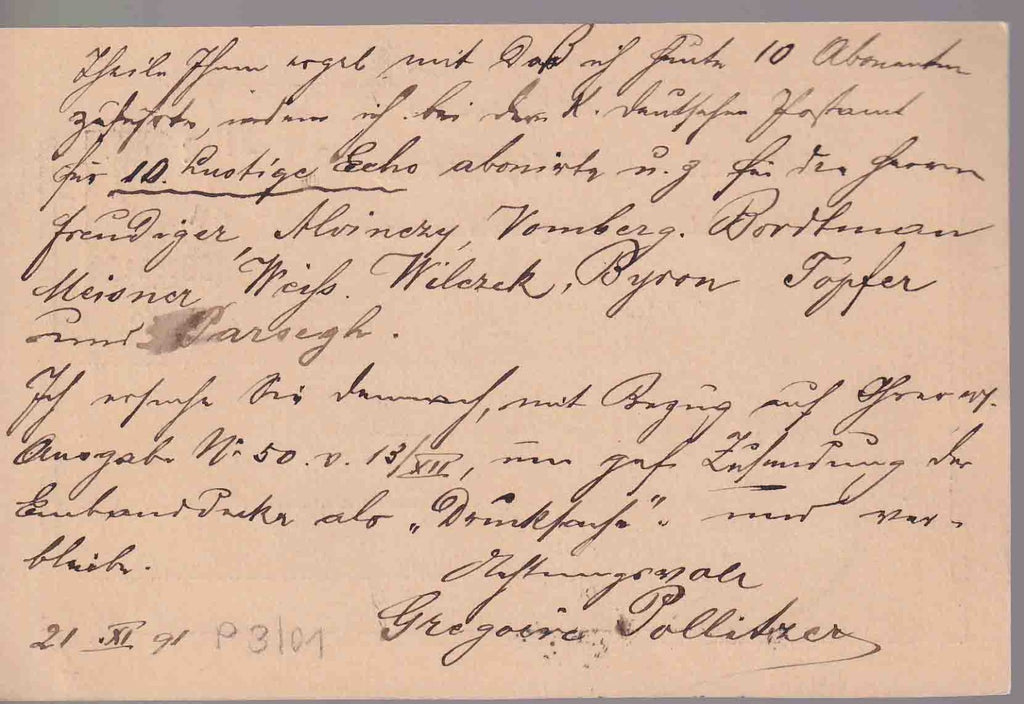 Theile Ihnen ergeb mit daß ich heute 10 Abonenten
zuführte, indem ich bei dem K. deutschen Postamt
für 10. Lustige Echo abonirte u. z für die Herren
Freudiger, Alvinczy, Vomberg. Bordtman
Meisner, Weiss. Wilczek, Byron Topfer
und Parsegh.
Ich ersuche Sie demnach, mit Bezug auf Ihre
Ausgabe No 50. v. 13/XII, um gef. Zusendung der
Einbanddecke als „Drucksache“. und ver-
bleibe.
Achtungsvoll
Gregoire Pollitzer
21 XI 91 P 3/01